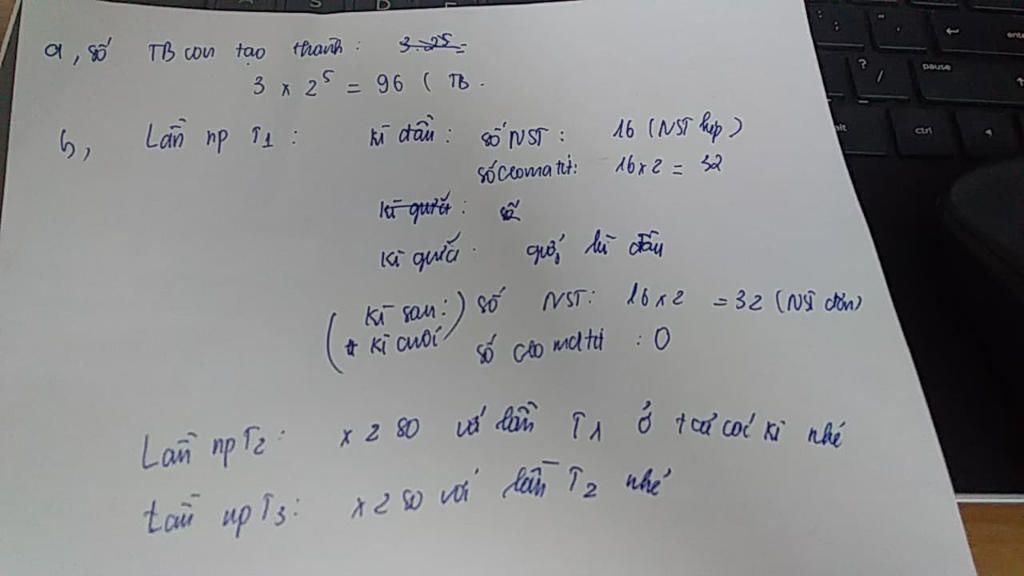 a, số TB con tạo thành: 3.2⁵=
3 × 2⁵ = 96 ( TB.
b, Lần np T1: Kì đầu: số NST: 16 (NST kép)
số cromatit: 16×2 = 32
Kì giữa: số
Kì giữa: giống kì đầu
Kì sau: số NST: 16×2 = 32 (NST đơn)
( + kì cuối ) số cromatit: 0
Lần np T2: ×2 so với lần T1 ở tất cả các kì nhé
Lần np T3: ×2 so với lần T2 nhé
PAUSE
ctrl
alt
enter